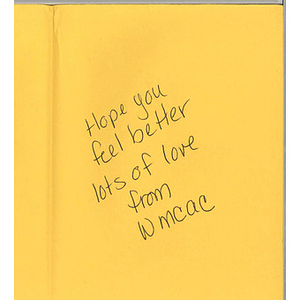 Hope you
feel better
lots of love
from
WMCAC